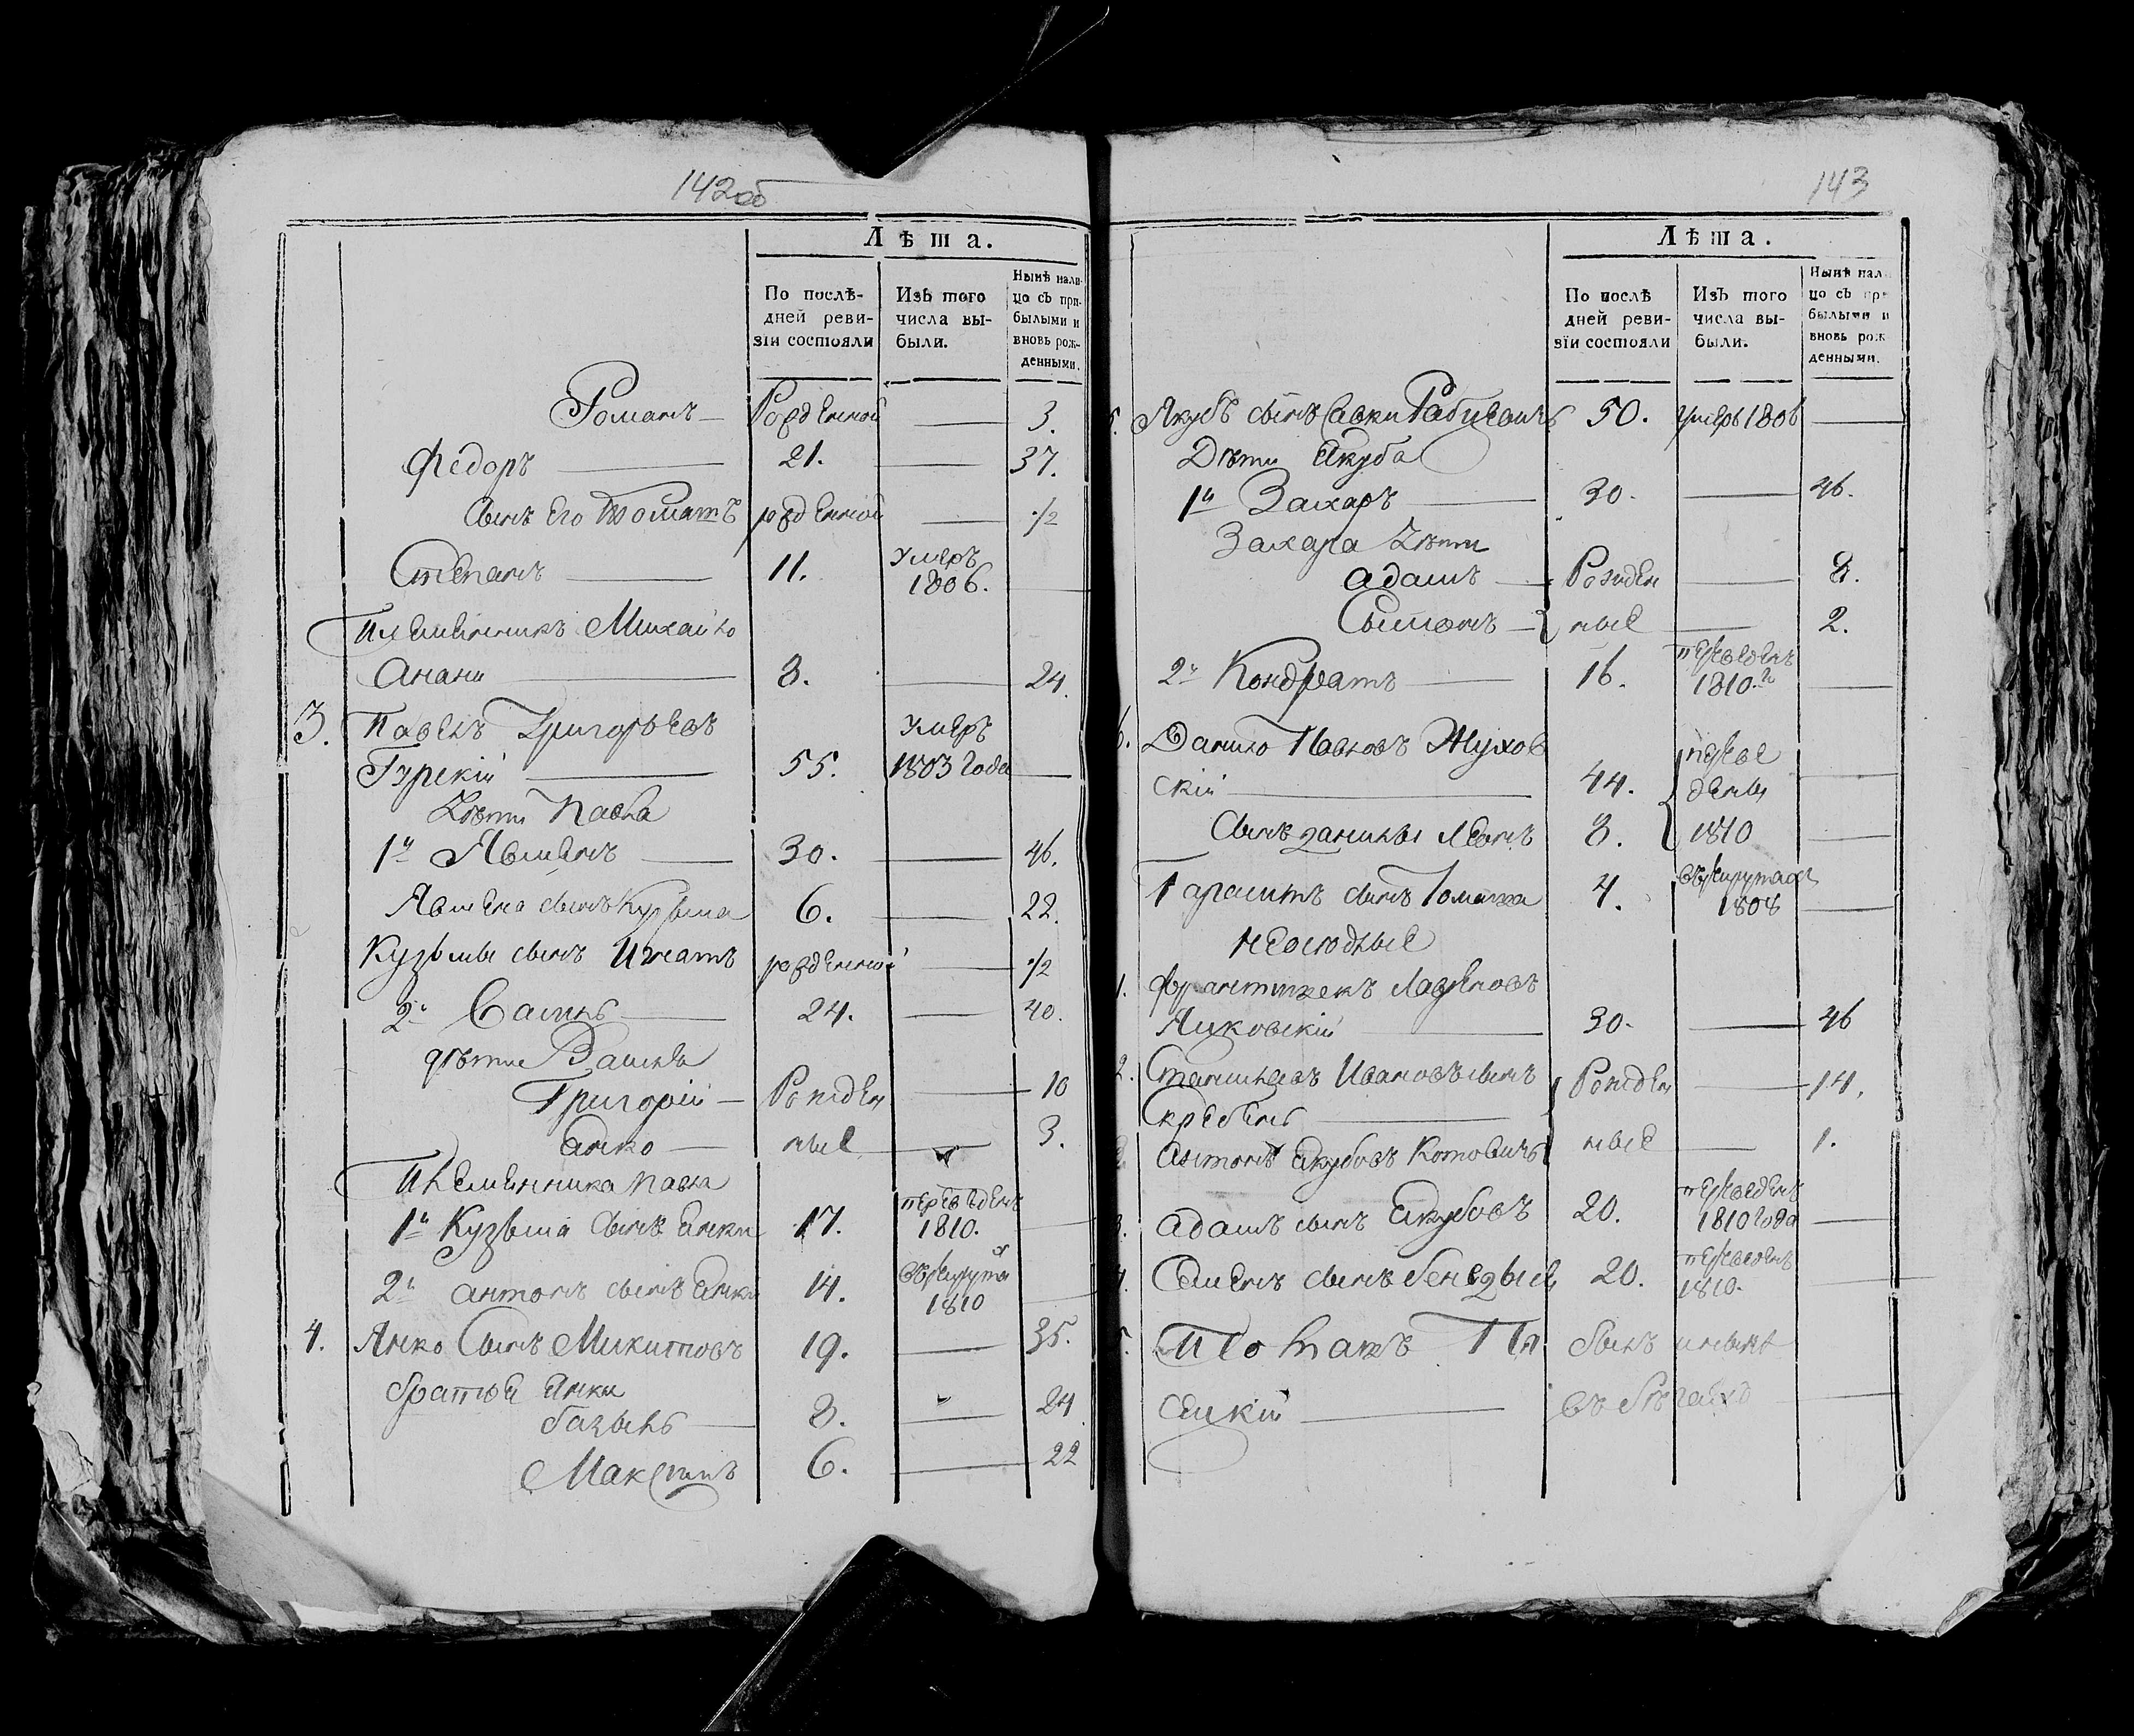 142об
Лѣта.
По послѣ- дней реви- зіи состояли
Изъ того числа вы- были.
Нынѣ нали- цо съ при- былыми и вновь рож- денными.
Романъ рожденной 3.
Федоръ 21. 37.
Сынъ его Томашъ рожденной ½
Степанъ 11. Умеръ 1806.
Племенникъ Михайло
Анани 8. 24.
3. Павелъ Григорьевъ Умеръ
Гурскій 55. 1803 года
Дѣти Павла
1й Явменъ 30. 46.
Явмена сынъ Кузьма 6. 22.
Кузьмы сынъ Игнатъ рожденной ½
2й 24. 40.
дѣти
Григорій Рожден 10
Янко ные 3.
Племенника Павла
1й Кузьма сынъ Янки 17. переведенъ 1810.
2й Антонъ сынъ Янки 14. въ рекруты 1810
4. Янко Сынъ Микитовъ 19. 35.
братья Янки
базыль 8. 24
Максимъ 6. 22
143
Лѣта.
По послѣ дней реви- зіи состояли
Изъ того числа вы- были.
Нынѣ нали цо съ при былыми и вновь рож денными.
5. Якубъ сынъ Савки 50. умеръ 1806
Дѣти Якуба
1й Захаръ 30. 46.
Захара Дѣти
Адамъ Рожден 8.
Сымонъ ные 2.
2й Кондратъ 16. переведенъ 1810.г
6. Данило Павловъ Жухов
скій 44. переве дены
Сынъ данилы Леонъ 8. 1810
Сынъ Томаша 4. въ рекрутахъ 1808
неоседлые
1. Францишекъ Лавреновъ
Яцковскій 30. 46
2. Станиславъ Ивановъ сынъ Рожден 14.
Антонъ Якубовъ Котовичъ ные 1.
3. Адамъ сынъ Якубовъ 20. переведенъ 1810 года
4. Семенъ сынъ 20. переведенъ 1810.
5. былъ и нынѣ
сецкій въ бѣгахъ